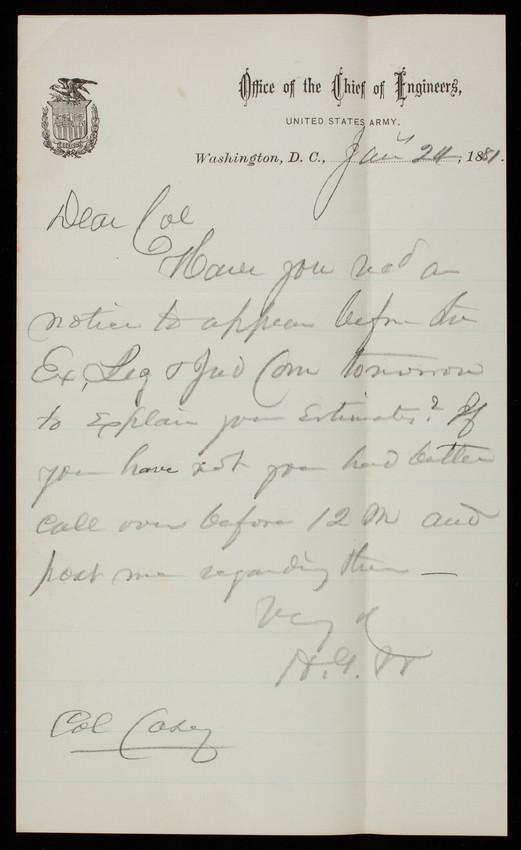 Office of the Chief of Engineers,
UNITED STATES ARMY,
Washington, D. C., Jany 24, 1881.
Dear Col
Have you rec'd a
notice to appear before the
Ex, Leg & Jud Com tomorrow
to explain your estimates? If
you have not you had better
call over before 12 M and
post me regarding them —
Very
H.G.W
Col Casey